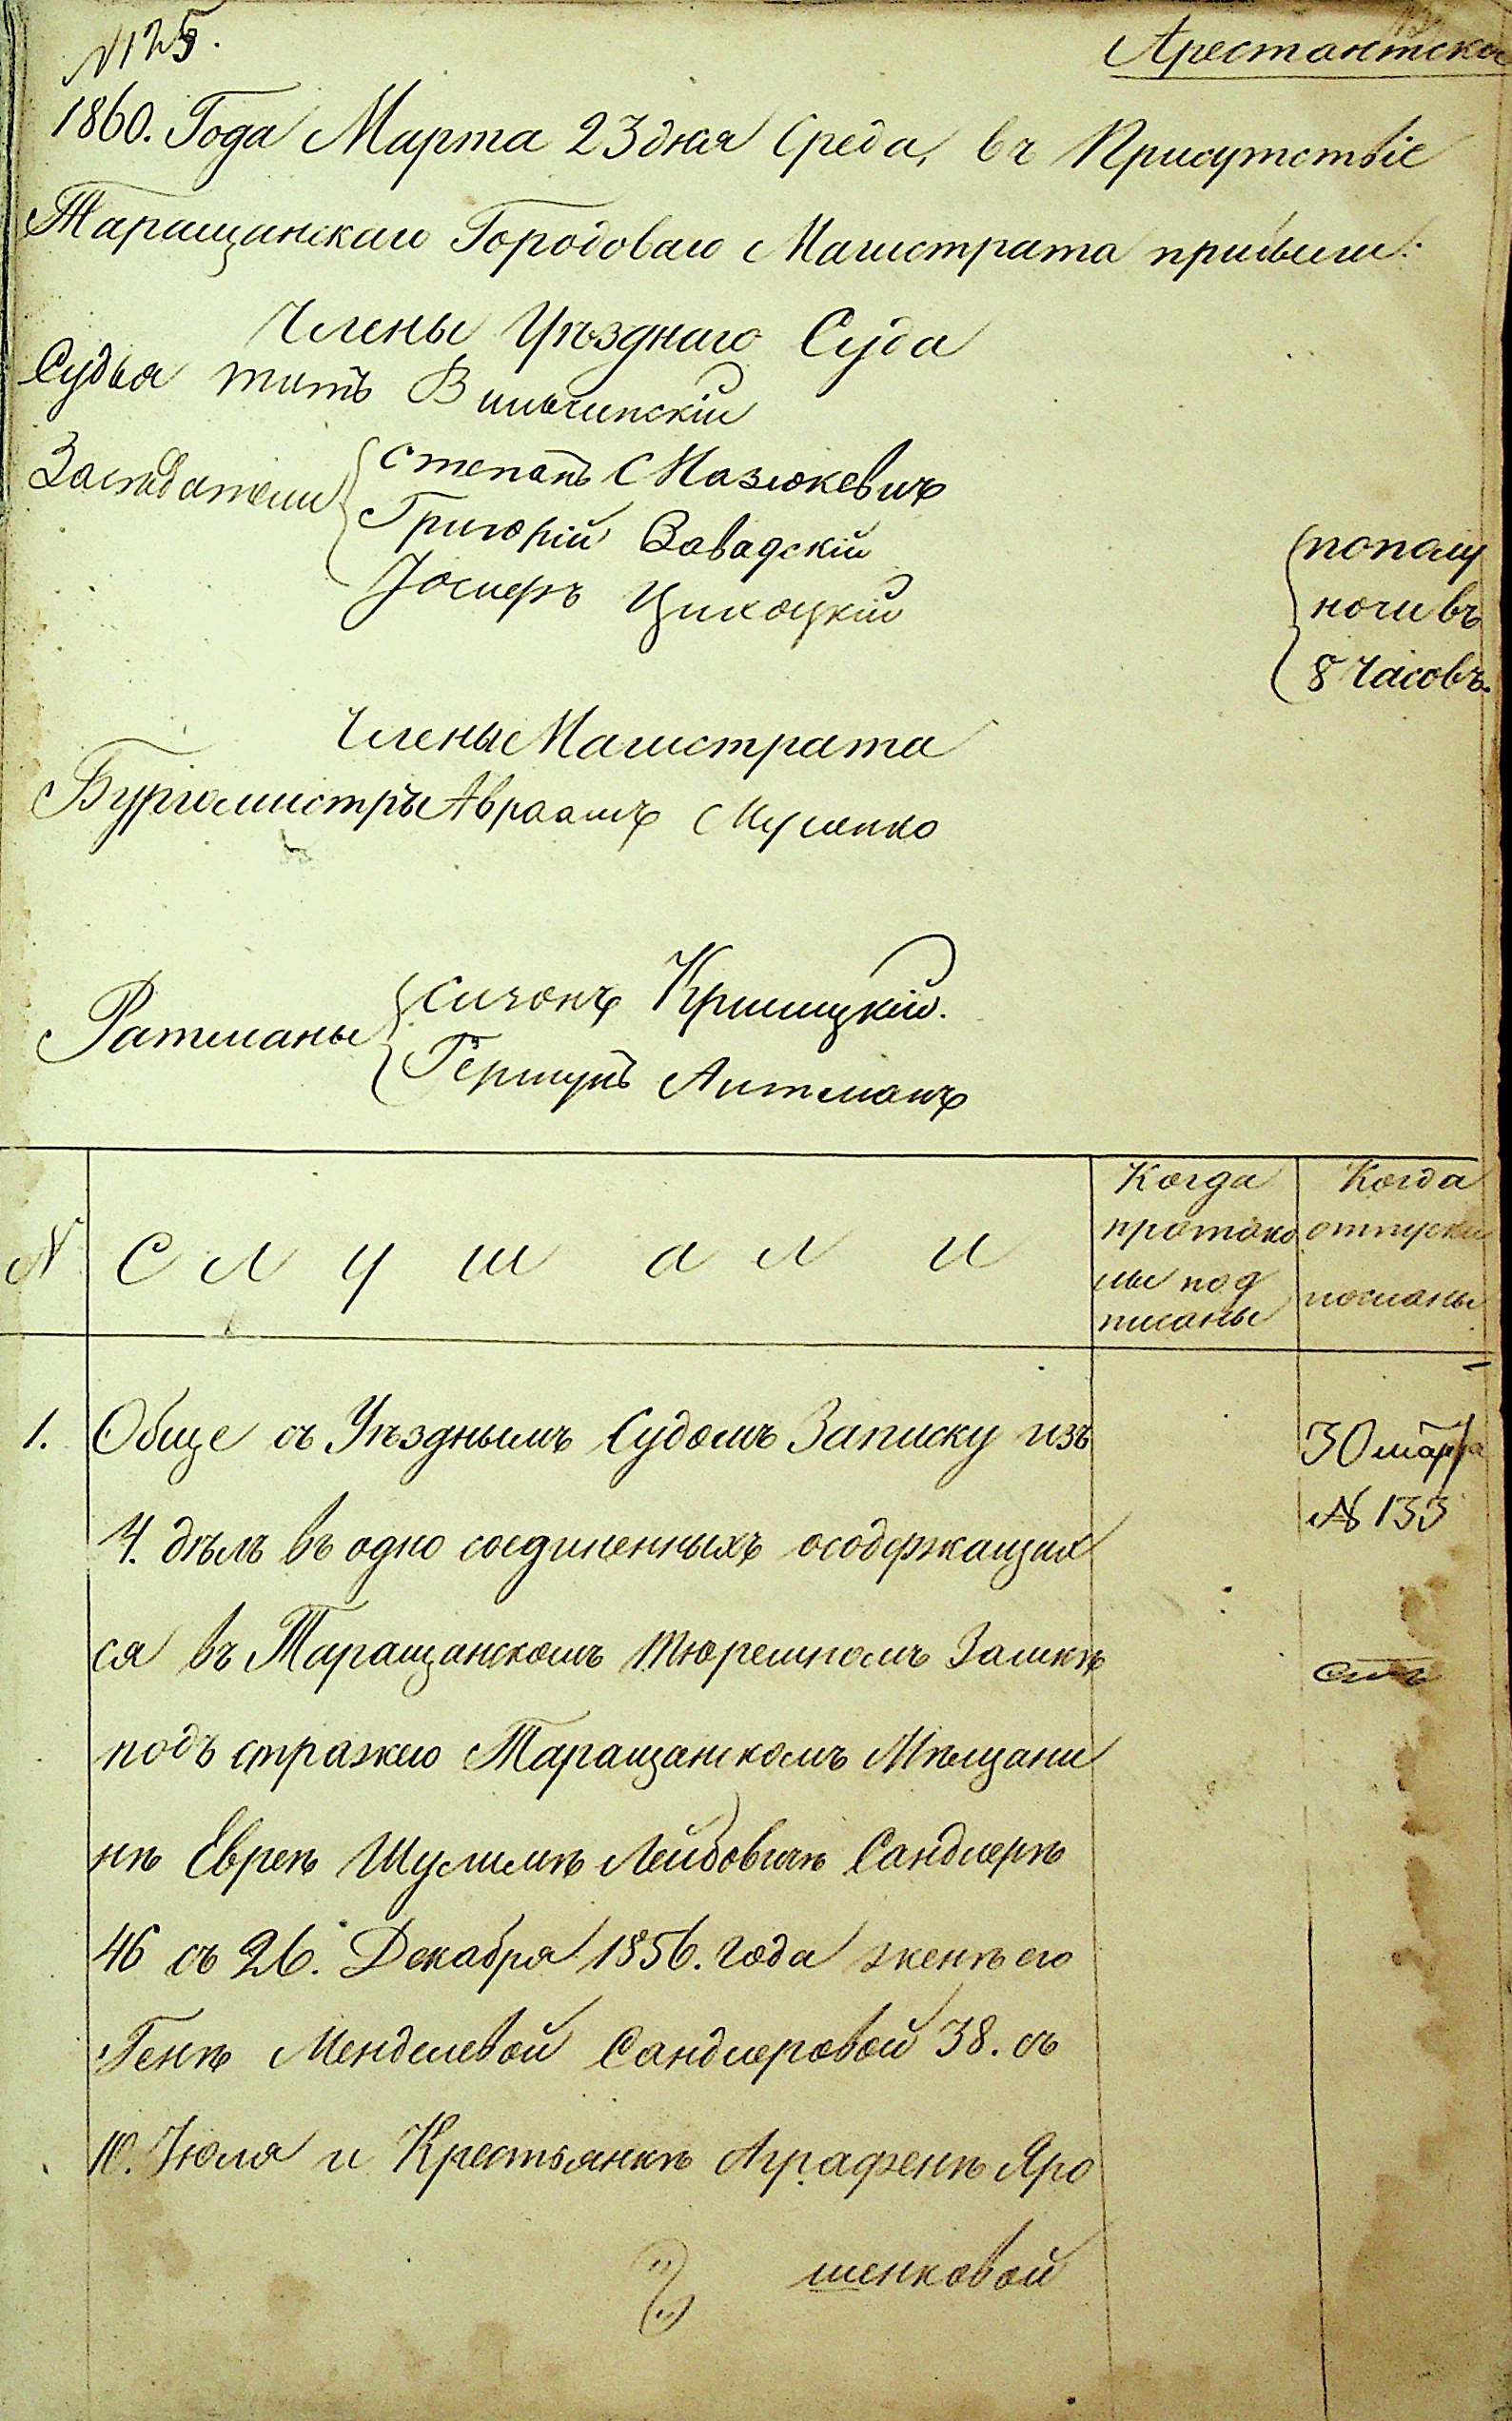 N 125.
Арестантское
1860. Года Марта 23 дня Среда, въ Присутствіе
Таращанскаго Городоваго Магистрата прибыли:
Члены Уѣзднаго Суда
Судья Титъ Вильчинскій
Засѣдатели
Степанъ Мазюкевичъ
Григорій Завадскій
Іосифъ Цихоцкій
пополу
ночи въ
8 часовъ.
Члены Магистрата
Бургомистръ Авраамъ Мусенко
Ратманы
Симонъ Криницкій.
Гершунъ Аитманъ
N
Слушали
Когда
протоко
лы под
писаны
Когда
отпуски
посланы
1. Обще съ Уѣзднымъ Судомъ Записку изъ
4. дѣлъ въ одно соединенныхъ осодержащих
ся въ Таращанскомъ тюремномъ Замкѣ
подъ стражею Таращанскомъ Мѣщани
нѣ Евреѣ Шулимѣ Лейбовичѣ Сандлерѣ
46 съ 26. Декабря 1856. года женѣ его
Генѣ Менделевой Сандлеровой 38. съ
10. Іюля и Крестьянкѣ Аграфенѣ Яро
шенковой
30 марта
№ 133